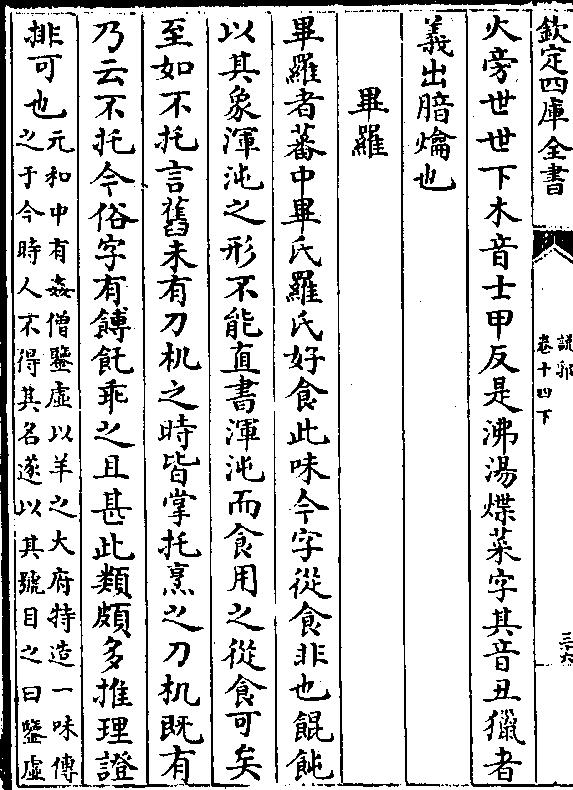 欽定四庫全書
說郛
卷十四下
三十六
火旁世世下木音士甲反是沸湯煠菜字其音丑獵者
義出腤爚也
畢羅
畢羅者蕃中畢氏羅氏好食此味今字從食非也餛飩
以其象渾沌之形不能直書渾沌而食用之從食可矣
至如不托言舊未有刀机之時皆掌托烹之刀机既有
乃云不托今俗字有餺飥乖之且甚此類頗多推理證
排可也元和中有姦僧鑒虛以羊之大府特造一味傳
之于今時人不得其名遂以其號目之曰鑒虛